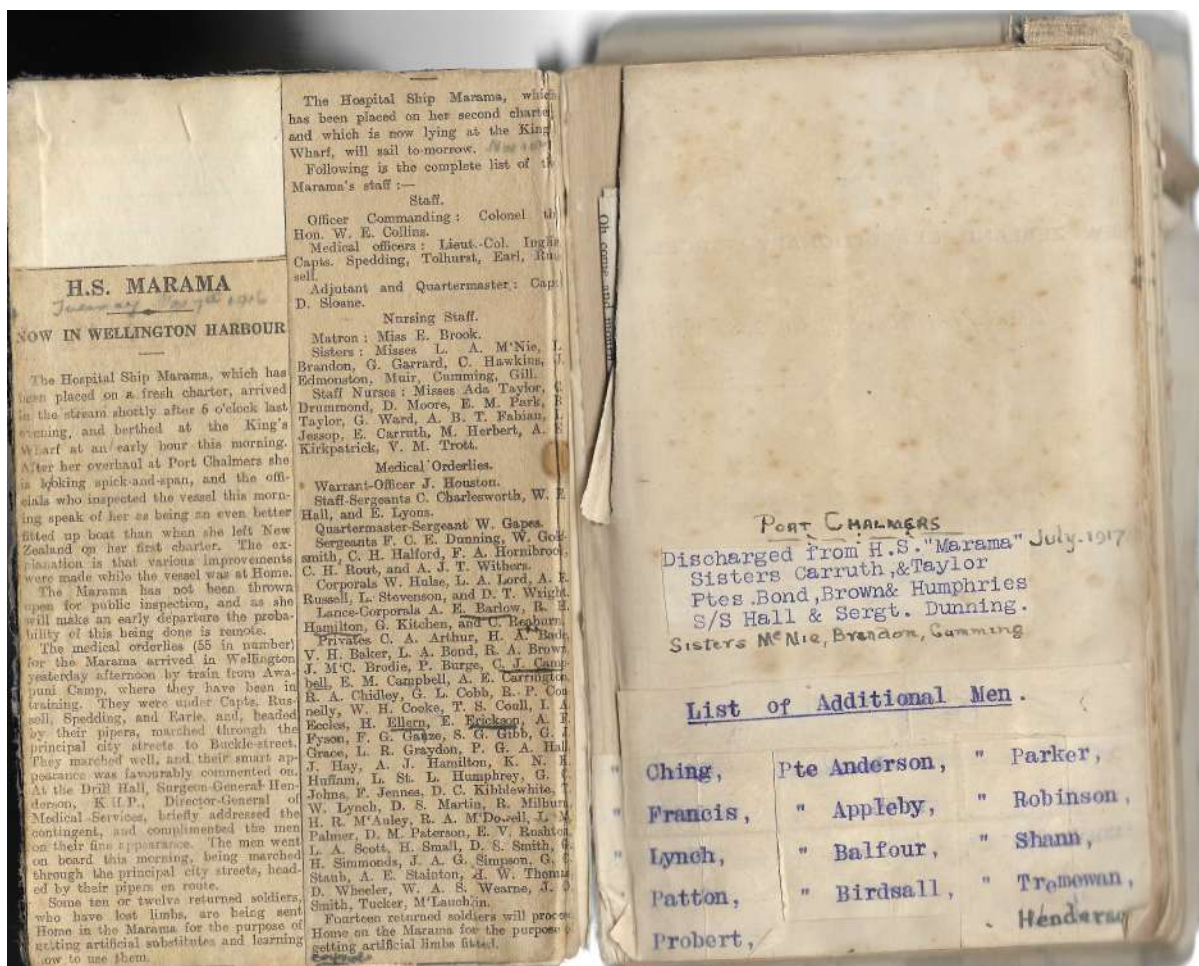 H.S. MARAMA
NOW IN WELLINGTON HARBOUR
The Hospital Ship Marama, which has
been placed on a fresh charter, arrived
in the stream shortly after 6 o'clock last
evening, and berthed at the King's
Wharf at an early hour this morning.
After her overhaul at Port Chalmers she
is looking spick-and-span, and the offi-
cials who inspected the vessel this morn-
ing speak of her as being an even better
fitted up boat than when she left New
Zealand on her first charter. The ex-
planation is that various improvements
were made while the vessel was at Home.
The Marama has not been thrown
open for public inspection, and as she
will make an early departure the proba-
bility of this being done is remote.
The medical orderlies (55 in number)
for the Marama arrived in Wellington
yesterday afternoon by train from Awa-
puni Camp, where they have been in
training. They were under Capts. Rus-
sell, Spedding, and Earle, and, headed
by their pipers, marched through the
principal city streets to Buckle-street.
They marched well, and their smart ap-
pearance was favourably commented on.
At the Drill Hall, Surgeon-General Hen-
derson, K.H.P., Director-General of
Medical Services, briefly addressed the
contingent, and complimented the men
on their fine appearance. The men went
on board this morning, being marched
through the principal city streets, head-
ed by their pipers en route.
Some ten or twelve returned soldiers,
who have lost limbs, are being sent
Home in the Marama for the purpose of
getting artificial substitutes and learning
how to use them.
The Hospital Ship Marama, which
has been placed on her second charte
and which is now lying at the King
Wharf, will sail to-morrow.
Following is the complete list of th
Marama's staff :—
Staff.
Officer Commanding : Colonel th
Hon. W. E. Collins.
Medical officers : Lieut.-Col. Inglis
Capts. Spedding, Tolhurst, Earl, Rus
sell.
Adjutant and Quartermaster : Capt
D. Sloane.
Nursing Staff.
Matron : Miss E. Brook.
Sisters : Misses L. A. M'Nie, L
Brandon, G. Garrard, C. Hawkins, J.
Edmonston, Muir, Cumming, Gill.
Staff Nurses : Misses Ada Taylor, C
Drummond, D. Moore, E. M. Park, B
Taylor, G. Ward, A. B. T. Fabian, L
Jessop, E. Carruth, M. Herbert, A. E
Kirkpatrick, V. M. Trott.
Medical Orderlies.
Warrant-Officer J. Houston.
Staff-Sergeants C. Charlesworth, W. E
Hall, and E. Lyons.
Quartermaster-Sergeant W. Gapes.
Sergeants F. C. E. Dunning, W. Gold-
smith, C. H. Halford, F. A. Hornibrook,
C. H. Rout, and A. J. T. Withers.
Corporals W. Hulse, L. A. Lord, A. E.
Russell, L. Stevenson, and D. T. Wright.
Lance-Corporals A. E. Barlow, R. H.
Hamilton, G. Kitchen, and C. Reaburn.
Privates C. A. Arthur, H. A. Bade,
V. H. Baker, L. A. Bond, R. A. Brown,
J. M'C. Brodie, P. Burge, C. J. Camp-
bell, E. M. Campbell, A. E. Carrington,
R. A. Chidley, G. L. Cobb, R. P. Con-
nelly, W. H. Cooke, T. S. Coull, I. A.
Eccles, H. Ellern, E. Erickson, A. F.
Fyson, F. G. Gauze, S. G. Gibb, G. J.
Grace, L. R. Graydon, P. G. A. Hall,
J. Hay, A. J. Hamilton, K. N. H.
Huffam, L. St. L. Humphrey, G. C.
Johns, F. Jennes, D. C. Kibblewhite,
W. Lynch, D. S. Martin, R. Milburn,
H. R. M'Auley, R. A. M'Dowell, L. M.
Palmer, D. M. Paterson, E. V. Rushton,
L. A. Scott, H. Small, D. S. Smith,
H. Simmonds, J. A. G. Simpson, G. C.
Staub, A. E. Stainton, J. W. Thomas
D. Wheeler, W. A. S. Wearne, J. O.
Smith, Tucker, M'Lauchlin.
Fourteen returned soldiers will proce
Home on the Marama for the purpose o
getting artificial limbs fitted.
Oh come and mourn
PORT CHALMERS
Discharged from H.S."Marama" July-1917
Sisters Carruth,&Taylor
Ptes.Bond,Brown& Humphries
S/S Hall & Sergt. Dunning.
Sisters McNie, Brandon, Cumming
List of Additional Men.
" Ching,
" Francis,
" Lynch,
" Patton,
Probert,
Pte Anderson,
" Appleby,
" Balfour,
" Birdsall,
" Parker,
" Robinson,
" Shann,
" Tremewan,
Henderson